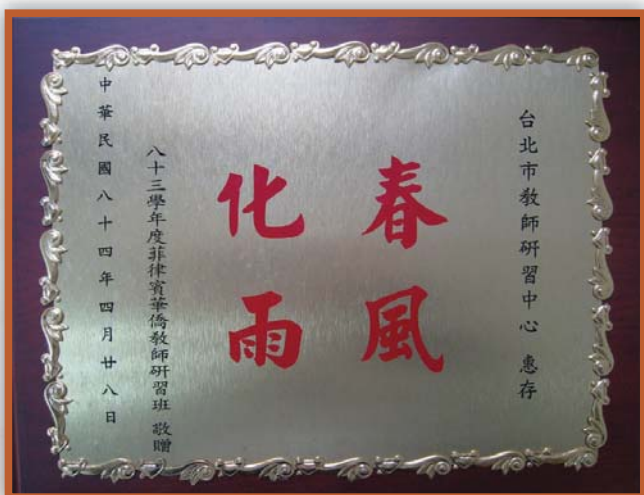 台北市教師研習中心 惠存
春風
化雨
八十三學年度菲律賓華僑教師研習班 敬贈
中華民國八十四年四月廿八日